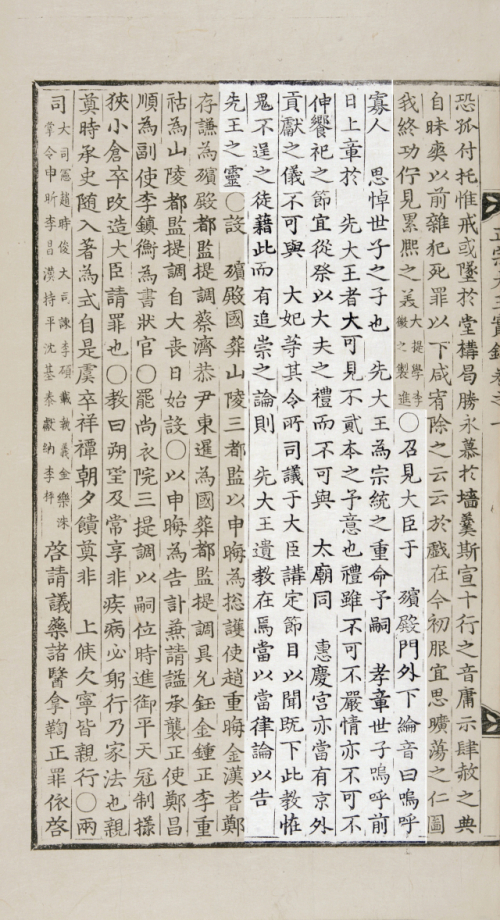 正宗大王實錄卷之一
恐孤付托惟戒或墜於堂構曷勝永慕於墻羹斯宣十行之音庸示肆赦之典
自昧爽以前雜犯死罪以下咸宥除之云云於戲在今初服宜思曠蕩之仁圖
我終功佇見累熙之美大提學李徽之製進○召見大臣于 殯殿門外下綸音曰嗚呼
寡人 思悼世子之子也 先大王爲宗統之重命予嗣 孝章世子嗚呼前
日上章於 先大王者大可見不貳本之予意也禮雖不可不嚴情亦不可不
伸饗祀之節宜從祭以大夫之禮而不可與 太廟同 惠慶宮亦當有京外
貢獻之儀不可與 大妃等其令所司議于大臣講定節目以聞旣下此教恠
鬼不逞之徒藉此而有追崇之論則 先大王遺教在焉當以當律論以告
先王之靈○設 殯殿國葬山陵三都監以申晦爲摠護使趙重晦金漢耆鄭
存謙爲殯殿都監提調蔡濟恭尹東暹爲國葬都監提調具允鈺金鍾正李重
祜爲山陵都監提調自大喪日始設○以申晦爲告訃兼請諡承襲正使鄭昌
順爲副使李鎭衡爲書狀官○罷尚衣院三提調以嗣位時進御平天冠制樣
狹小倉卒改造大臣請罪也○教曰朔望及常享非疾病必躬行乃家法也親
奠時承史隨入著爲式自是虞卒祥禫朝夕饋奠非 上候欠寧皆親行○兩
司大司憲趙時俊大司諫李碩載執義金樂洙掌令申昕李昌漢持平沈基泰獻納李枰 啓請議藥諸醫拿鞫正罪依啓